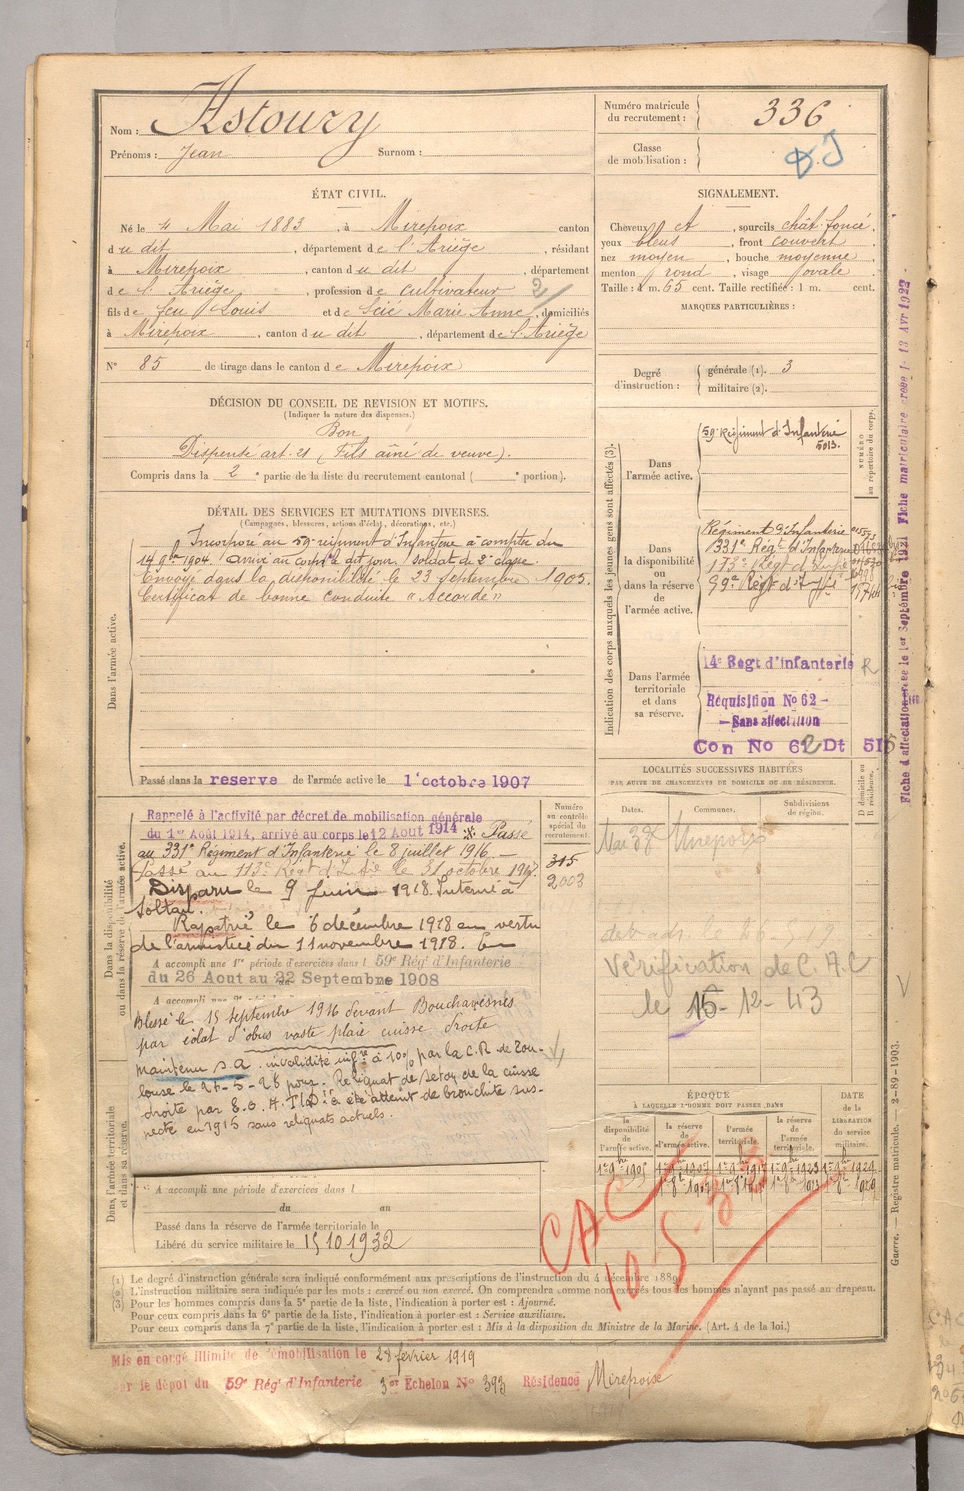 Nom : Astoury
Prénoms : Jean Surnom :
Numéro matricule du recrutement : 336
Classe de mobilisation :
ÉTAT CIVIL.
Né le 4 Mai 1883, à Mirepoix canton
du dit, département de l'Ariège, résidant
à Mirepoix, canton du dit, département
de l'Ariège, profession de cultivateur 2
fils de feu Louis et de Scié Marie Anne, domiciliés
à Mirepoix, canton du dit, département de l'Ariège
N° 85 de tirage dans le canton de Mirepoix
DÉCISION DU CONSEIL DE REVISION ET MOTIFS.
(Indiquer la nature des dispenses.)
Bon
Dispensé art. 21 (Fils aîné de veuve).
Compris dans la 2e partie de la liste du recrutement cantonal ( e portion).
SIGNALEMENT.
Cheveux ct, sourcils chât. foncé,
yeux bleus, front couvert,
nez moyen, bouche moyenne,
menton rond, visage ovale.
Taille : 1 m. 65 cent. Taille rectifiée : 1 m. cent.
MARQUES PARTICULIÈRES :
Degré d'instruction :
générale (1). 3
militaire (2).
DÉTAIL DES SERVICES ET MUTATIONS DIVERSES.
(Campagnes, blessures, actions d'éclat, décorations, etc.)
Dans l'armée active.
Incorporé au 59e régiment d'Infanterie à compter du
14 9bre 1904. Arrivé au corps le dit jour, soldat de 2e classe.
Envoyé dans la disponibilité le 23 septembre 1905.
Certificat de bonne conduite "Accordé"
Passé dans la reserve de l'armée active le 1er octobre 1907
Indication des corps auxquels les jeunes gens sont affectés (3).
NUMÉRO au répertoire du corps.
Dans l'armée active.
59e Régiment d'Infanterie
5013.
Dans la disponibilité ou dans la réserve de l'armée active.
Régiment d'Infanterie
331e Régt d'Infanterie
113e Régt d'Infie
59e Regt d'Infie
Dans l'armée territoriale et dans sa réserve.
14e Regt d'infanterie R
Réquisition No 62 -
- Sans affectation
Con No 62 Dt 515
Fiche d'affectation créée le 1er Septembre 1921 Fiche matriculaire créée le 13 Avr 1922
Dans la disponibilité ou dans la réserve de l'armée active.
Numéro au contrôle spécial du recrutement.
Rappelé à l'activité par décret de mobilisation générale
du 1er Août 1914, arrivé au corps le 12 Aout 1914 Passé
au 331e Régiment d'Infanterie le 8 juillet 1916.
315
Passé au 113e Régt d'Infie le 31 octobre 1917.
2003
Disparu le 9 Juin 1918. Interné à
Soltau.
Rapatrié le 6 décembre 1918 en vertu
de l'armistice du 11 novembre 1918. En
A accompli une 1re période d'exercices dans l 59e Rég' d'Infanterie
du 26 Aout au 22 Septembre 1908
A accompli une
Blessé le 15 septembre 1916 devant Bouchavesnes
par éclat d'obus vaste plaie cuisse droite
maintenu s.a. invalidité infre à 10% par la C.R. de Toulouse
le 27-5-26 pour. Reliquat de séton de la cuisse
droite par E.O. a été atteint de bronchite suspecte
en 1915 sans reliquats actuels.
Dans l'armée territoriale et dans sa réserve.
A accompli une période d'exercices dans l
du au
Passé dans la réserve de l'armée territoriale le
Libéré du service militaire le 15 10 1932
LOCALITÉS SUCCESSIVES HABITÉES
PAR SUITE DE CHANGEMENTS DE DOMICILE OU DE RÉSIDENCE.
Dates. Communes. Subdivisions de région. D domicile ou R résidence.
Mai 38 Mirepoix
Vérification de C.A.C
le 15-12-43
ÉPOQUE
À LAQUELLE L'HOMME DOIT PASSER DANS
la disponibilité de l'armée active. la réserve de l'armée active. l'armée territoriale. la réserve de l'armée territoriale.
DATE de la LIBÉRATION du service militaire.
CAC
10-5-38
(1) Le degré d'instruction générale sera indiqué conformément aux prescriptions de l'instruction du 4 décembre 1889.
(2) L'instruction militaire sera indiquée par les mots : exercé ou non exercé. On comprendra comme non exercés tous les hommes n'ayant pas passé au drapeau.
(3) Pour les hommes compris dans la 5e partie de la liste, l'indication à porter est : Ajourné.
Pour ceux compris dans la 6e partie de la liste, l'indication à porter est : Service auxiliaire.
Pour ceux compris dans la 7e partie de la liste, l'indication à porter est : Mis à la disposition du Ministre de la Marine. (Art. 4 de la loi.)
Guerre. — Registre matricule. — 2-89-1903.
Mis en congé illimité de démobilisation le 28 février 1919
par le dépôt du 59e Rég' d'Infanterie 3er Echelon No 393 Résidence Mirepoix